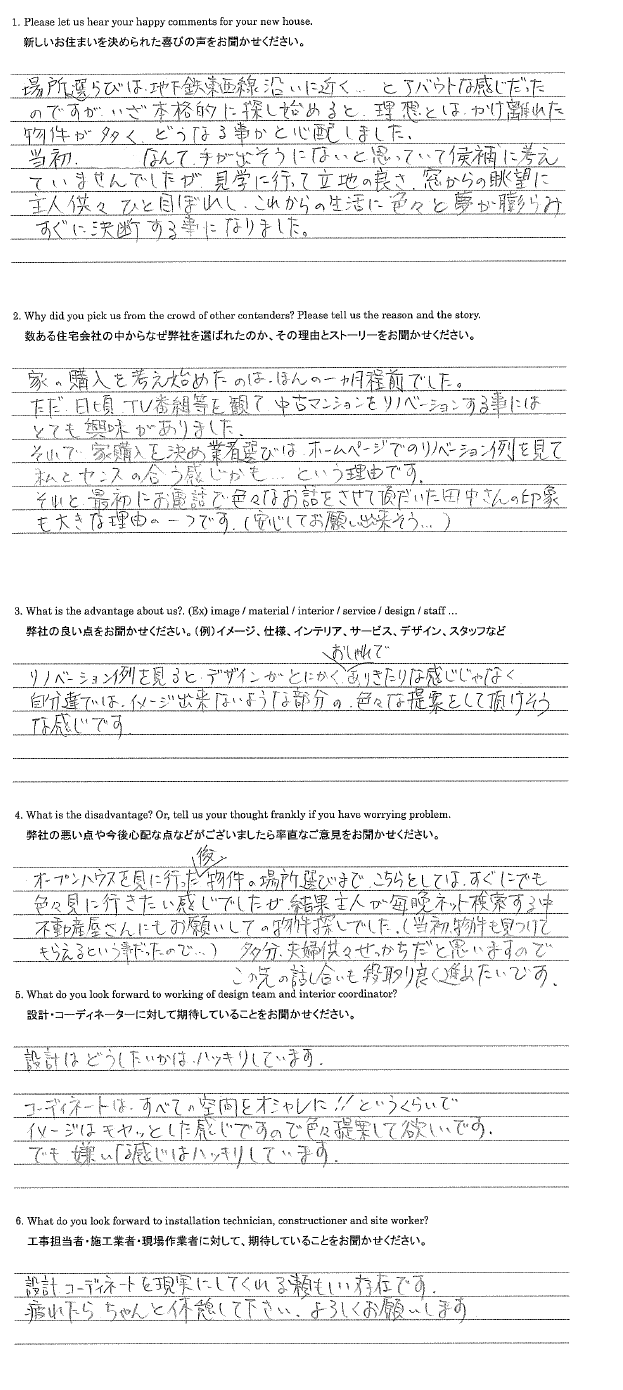 1. Please let us hear your happy comments for your new house.
新しいお住まいを決められた喜びの声をお聞かせください。
場所選らびは、地下鉄東西線沿いに近く… とアバウトな感じだった
のですが、いざ本格的に探し始めると、理想とは、かけ離れた
物件が多く、どうなる事かと心配しました。
当初、 なんて、手が出そうにないと思っていて候補に考え
ていませんでしたが、見学に行って立地の良さ、窓からの眺望に
主人供々 ひと目ぼれし、これからの生活に色々と夢が膨らみ
すぐに決断する事になりました。
2. Why did you pick us from the crowd of other contenders? Please tell us the reason and the story.
数ある住宅会社の中からなぜ弊社を選ばれたのか、その理由とストーリーをお聞かせください。
家の購入を考え始めたのは、ほんの一ヶ月程前でした。
ただ、日頃 TV番組等を観て 中古マンションをリノベーションする事には
とても興味がありました。
それで、家購入を決め業者選びは、ホームページでのリノベーション例を見て
私とセンスの合う感じかも… という理由です。
それと、最初にお電話で色々なお話をさせて頂だいた田中さんの印象
も大きな理由の一つです。(安心してお願い出来そう…)
3. What is the advantage about us?. (Ex) image / material / interior / service / design / staff ...
弊社の良い点をお聞かせください。(例)イメージ、仕様、インテリア、サービス、デザイン、スタッフなど
おしゃれで
リノベーション例を見ると、デザインがとにかく、ありきたりな感じじゃなく
自分達では、イメージ出来ないような部分の、色々な提案をして頂けそう
な感じです
4. What is the disadvantage? Or, tell us your thought frankly if you have worrying problem.
弊社の悪い点や今後心配な点などがございましたら率直なご意見をお聞かせください。
後
オープンハウスを見に行った物件の場所選びまで、こちらとしては、すぐにでも
色々見に行きたい感じでしたが 結果主人が毎晩ネット検索する中
不動産屋さんにもお願いしての物件探しでした。(当初、物件も見つけて
もらえるという事だったので…) 多分、夫婦供々せっかちだと思いますので
この先の話し合いも段取り良く進めたいです。
5. What do you look forward to working of design team and interior coordinator?
設計・コーディネーターに対して期待していることをお聞かせください。
設計はどうしたいかは、ハッキリしています。
コーディネートは、すべての空間をオシャレに!! というくらいで
イメージはモヤッとした感じですので色々提案して欲しいです。
でも 嫌いな感じはハッキリしています。
6. What do you look forward to installation technician, constructioner and site worker?
工事担当者・施工業者・現場作業者に対して、期待していることをお聞かせください。
設計 コーディネートを現実にしてくれる頼もしい存在です。
疲れたら ちゃんと休憩して下さい、よろしくお願いします